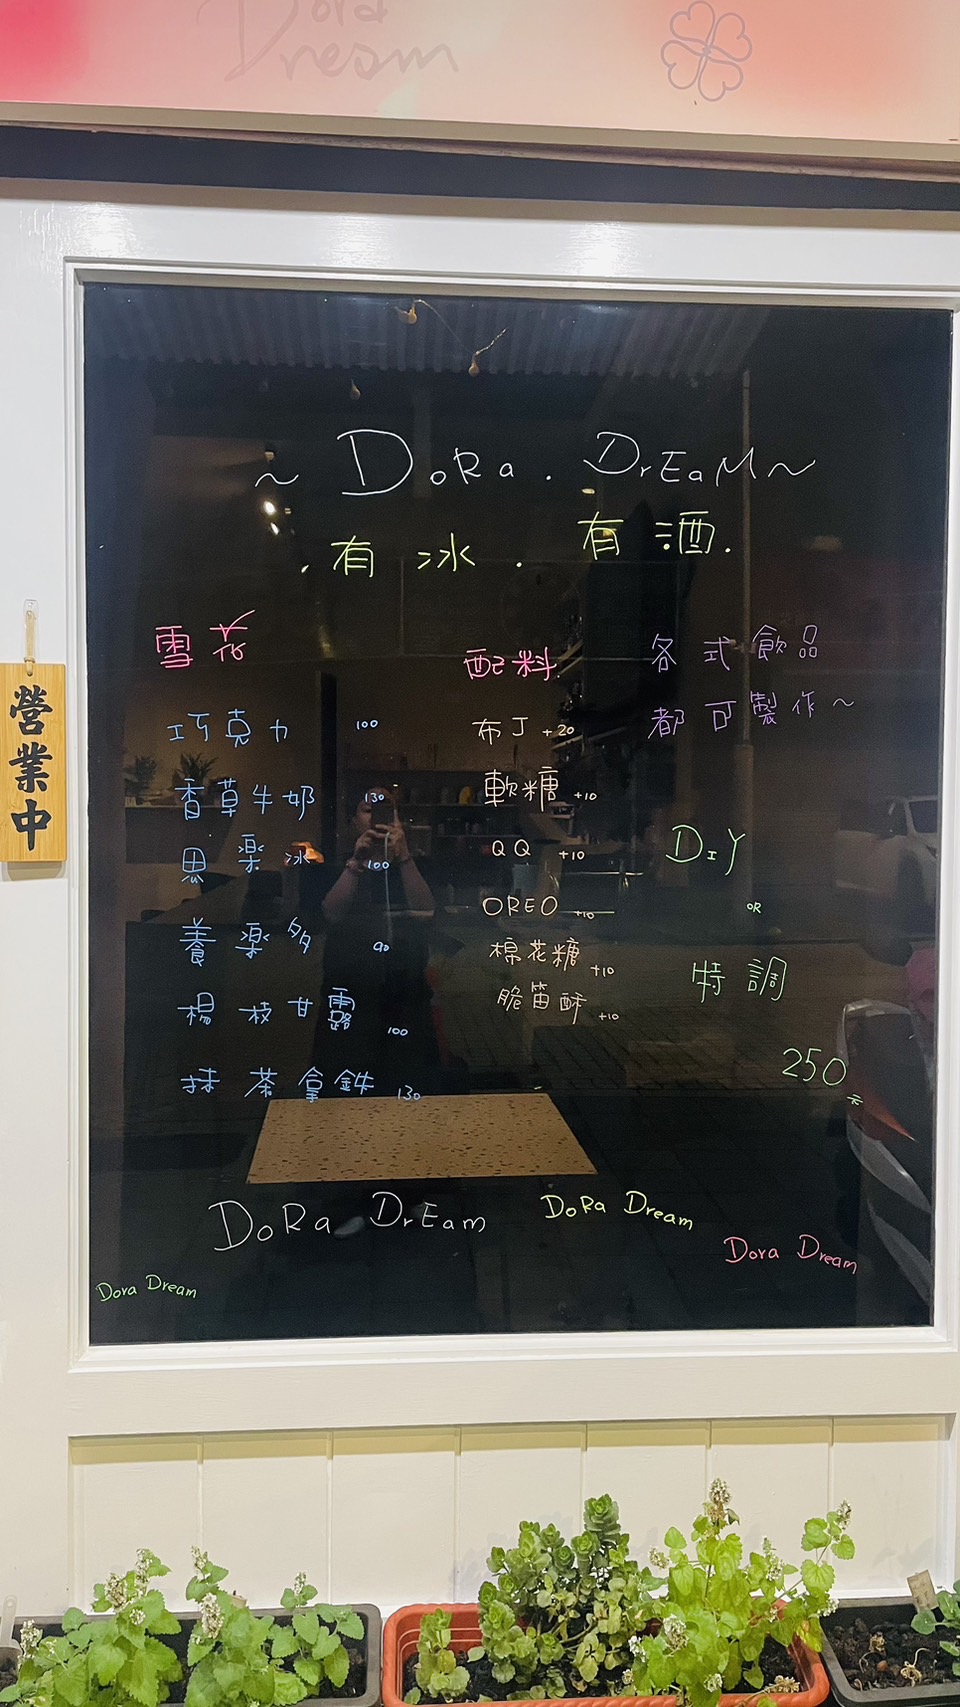 Dora
Dream
~ DoRa . DrEaM ~
. 有冰 . 有酒 .
營業中
雪花
巧克力 100
香草牛奶 130
思楽冰 100
養楽多 90
楊枝甘露 100
抹茶拿鉄 130
配料
布丁 +20
軟糖 +10
QQ +10
OREO +10
棉花糖 +10
脆笛酥 +10
各式飲品
都可製作~
DIY
OR
特調
250元
DoRa DrEam
DoRa Dream
Dora Dream
Dora Dream